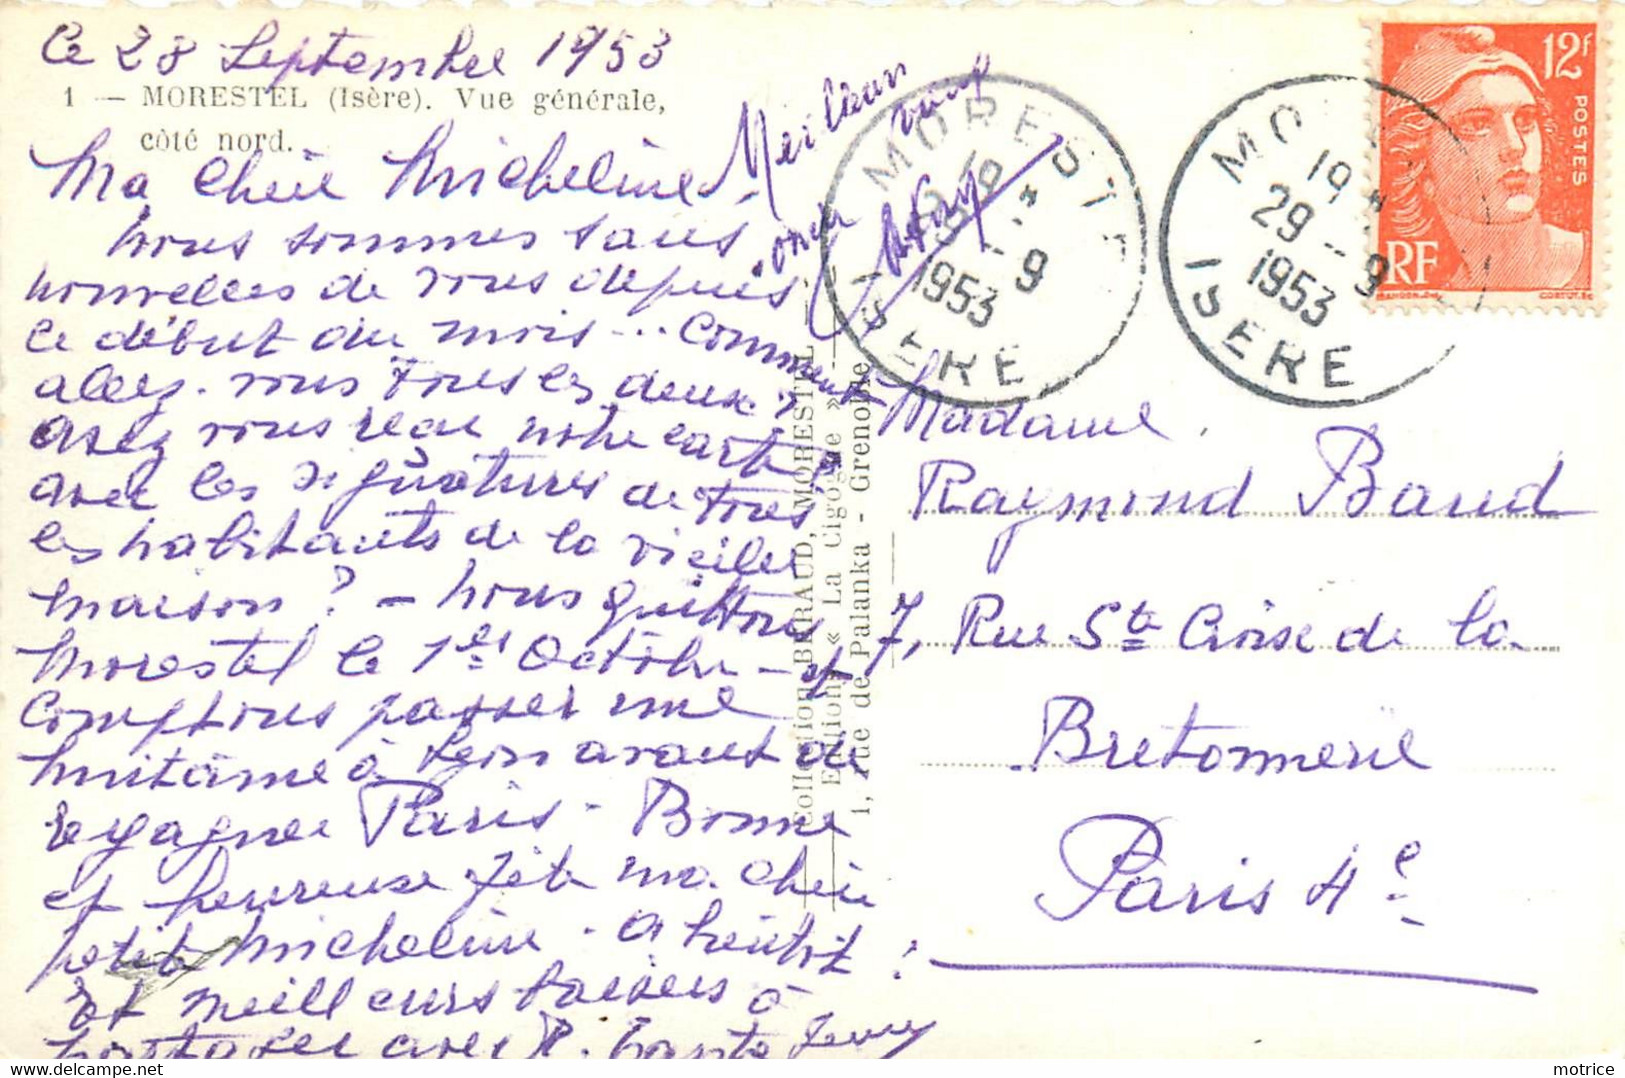 Ce 28 Septembre 1953
1 — MORESTEL (Isère). Vue générale,
côté nord.
Ma chère Micheline,
nous sommes sans
nouvelles de vous depuis
le début du mois... Comment
allez-vous tous les deux ?
avez vous reçu notre carte
avec les signatures de tous
les habitants de la vieille
maison ? — nous quittons
Morestel le 1er Octobre - et
comptons passer une
huitaine à Lyon avant de
regagner Paris - Bonne
et heureuse fête ma chère
petite Micheline - à bientôt !
et meilleurs baisers à
partager avec R. Tante Jenny
Meilleurs
vœux
oncle
MORESTEL
19 *
29 - 9
1953
ISERE
MO
19 *
29 - 9
1953
ISERE
12F
POSTES
RF
Collection BERAUD, MORESTEL
Edition « La Cigogne »
1, rue de Palanka - Grenoble
Madame
Raymond Baud
7, Rue Ste Croix de la
Bretonnerie
Paris 4e
motrice